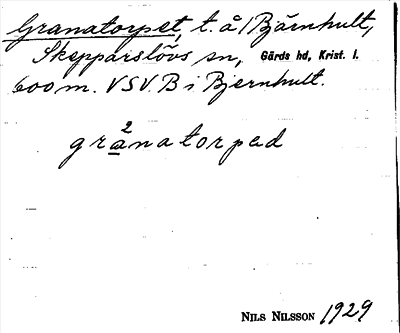 Granatorpet, t. å 1 Bjärnhult,
Skepparslövs sn, Gärds hd, Krist. l.
600 m. VSV. B i Bjernhult.
2
granatorpad
NILS NILSSON 1929